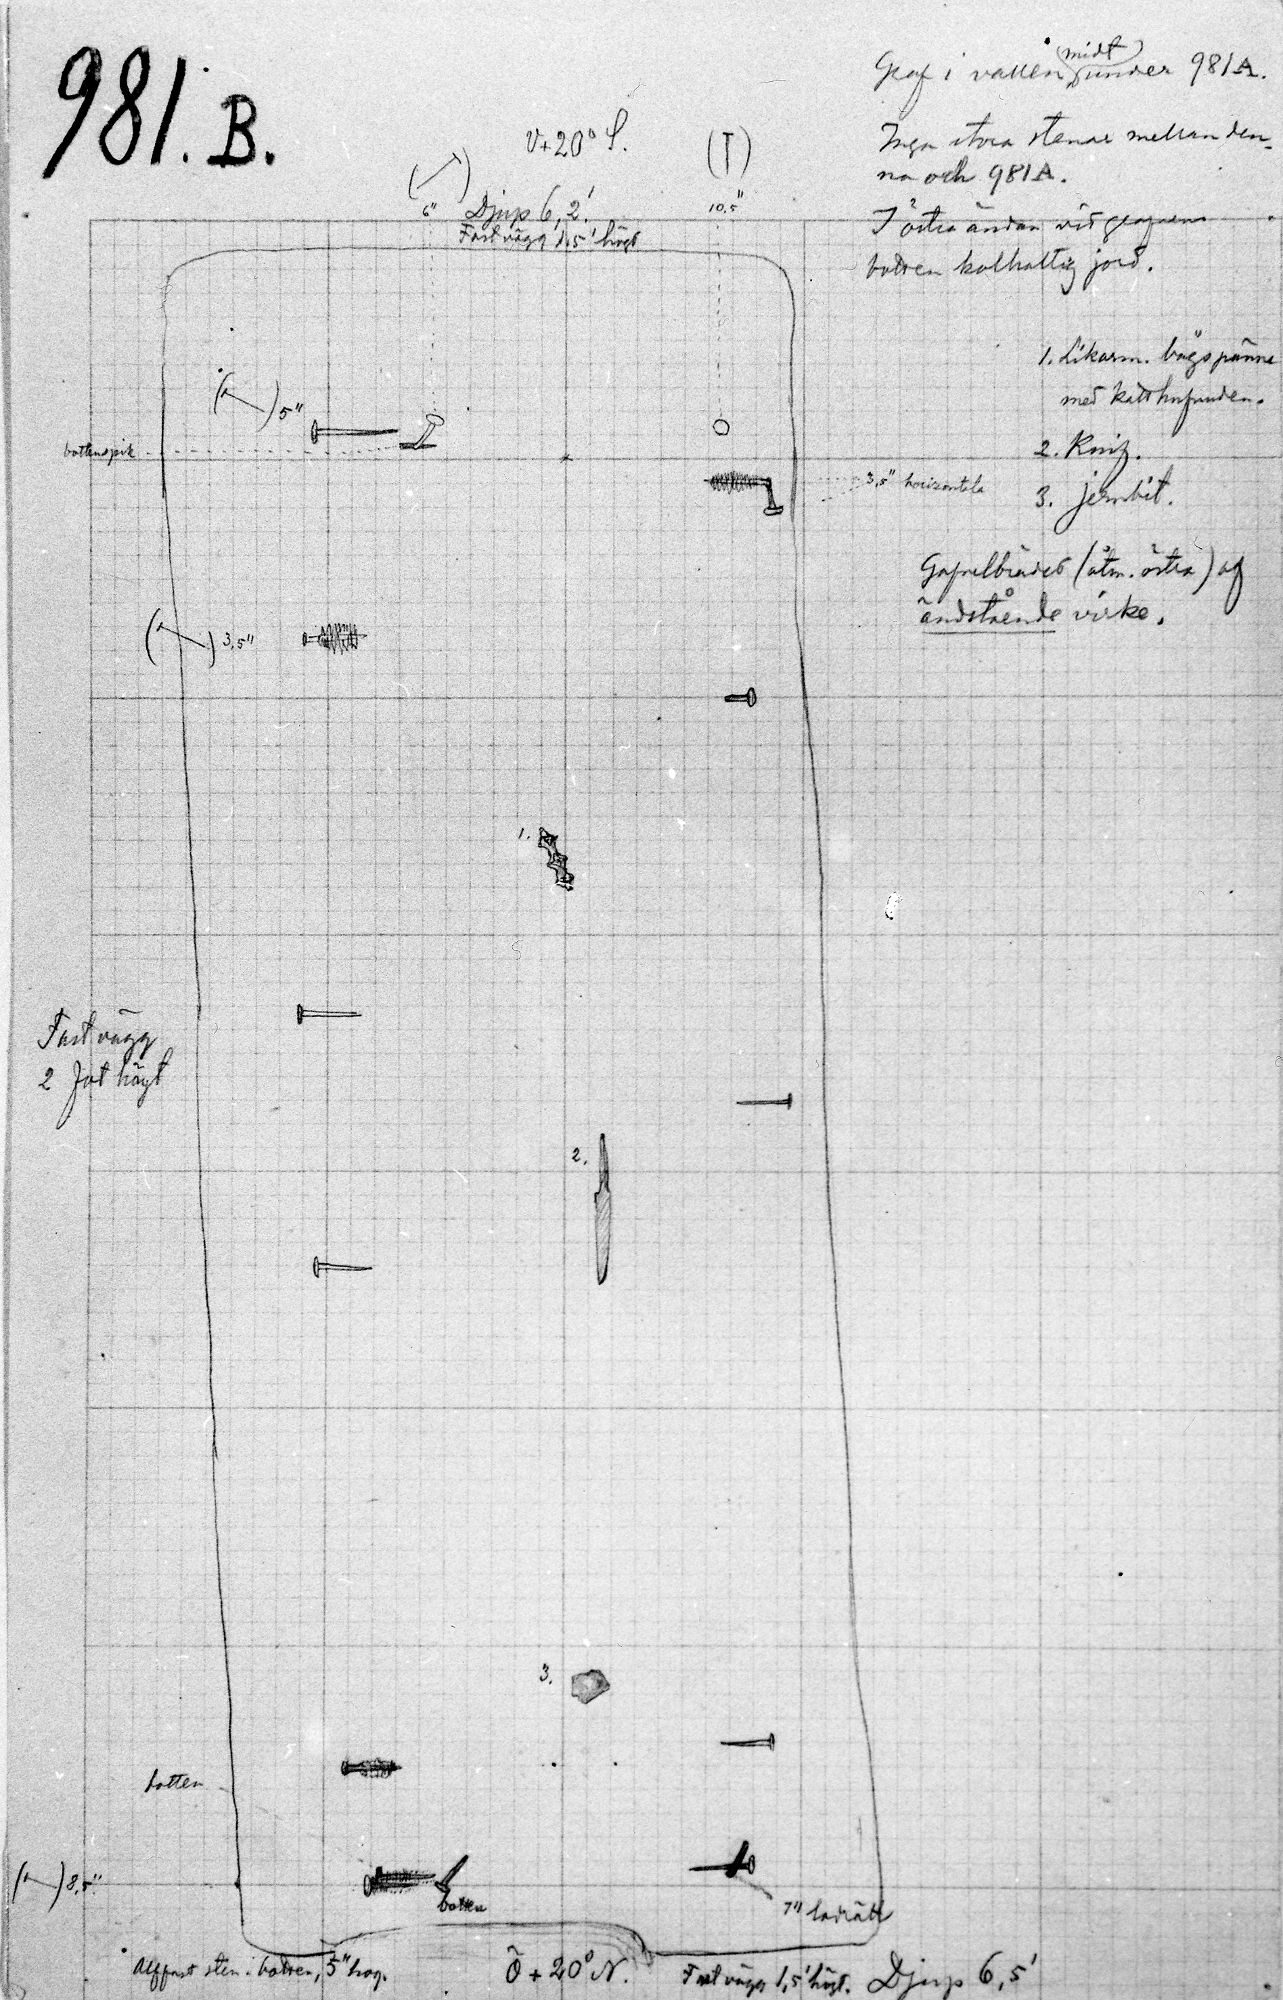 981. B.
Graf i vallen (midt) under 981A.
Inga stora stenar mellan den-
na och 981A.
I östra ändan vid grafvens
botten kolhaltig jord.
V+20° S.
(T)
6"
Djup 6,2'.
10,5"
Fast vägg 1,5' högt
1. Likarm. bågspänne
med
2. Knif.
3. jernbit.
5"
bottenspik
3,5" horizontela
Gafvelbrädet (åtm. östra) af
ändstående virke.
3,5"
1.
Fast vägg
2 fot högt
2.
3.
botten
8,5"
botten
7" lodrätt
sten i botten, 5" hög.
Ö+20° N.
Fast vägg 1,5' högt.
Djup 6,5'